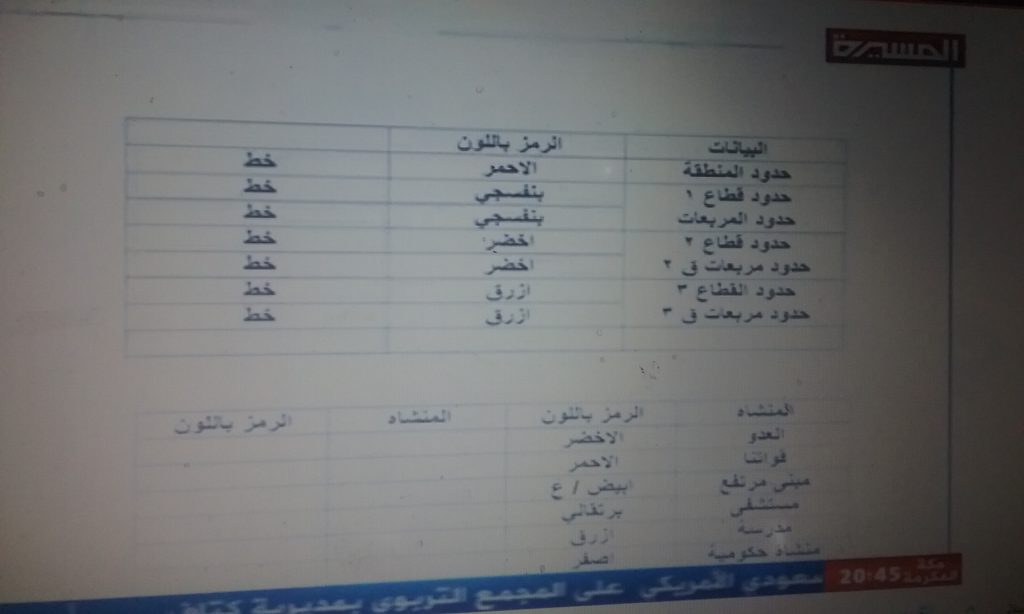 المسيرة
البيانات الرمز باللون
حدود المنطقة الاحمر خط
حدود قطاع ١ بنفسجي خط
حدود المربعات بنفسجي خط
حدود قطاع ٢ اخضر خط
حدود مربعات ق ٢ اخضر خط
حدود القطاع ٣ ازرق خط
حدود مربعات ق ٣ ازرق خط
المنشاه الرمز باللون المنشاه الرمز باللون
العدو الاخضر
قواتنا الاحمر
مبنى مرتفع ابيض / ع
مستشفى برتقالي
مدرسة ازرق
منشاه حكومية اصفر
مكة المكرمة 20:45 سعودي الأمريكي على المجمع التربوي بمديرية كتاف